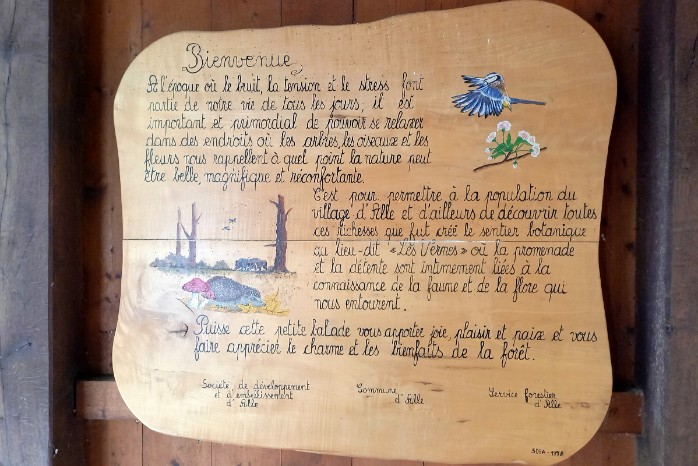 Bienvenue
A l'époque où le bruit, la tension et le stress font
partie de notre vie de tous les jours, il est
important et primordial de pouvoir se relaxer
dans des endroits où les arbres, les oiseaux et les
fleurs nous rappellent à quel point la nature peut
être belle, magnifique et réconfortante.
C'est pour permettre à la population du
village d'Alle et d'ailleurs de découvrir toutes
ces richesses que fut créé le sentier botanique
au lieu-dit «Les Vernes» où la promenade
et la détente sont intimement liées à la
connaissance de la faune et de la flore qui
nous entourent.
→ Puisse cette petite balade vous apporter joie, plaisir et paix et vous
faire apprécier le charme et les bienfaits de la forêt.
Société de développement
et d'embellissement
d'Alle
Commune
d'Alle
Service forestier
d'Alle